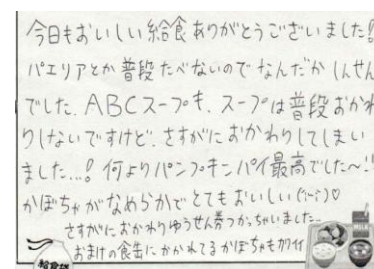 今日もおいしい給食ありがとうございました!
パエリアとか普段たべないのでなんだかしんせん
でした。ABCスープも、スープは普段おかわ
りしないですけど、さすがにおかわりしてしまい
ました...!何よりパンプキンパイ最高でした〜!!
かぼちゃがなめらかでとてもおいしい(ˊᵕˋ)♡
さすがにおかわりゆうせん券つかっちゃいました...
おまけの食缶にかかれてるかぼちゃもカワイイ
給食袋
MILK